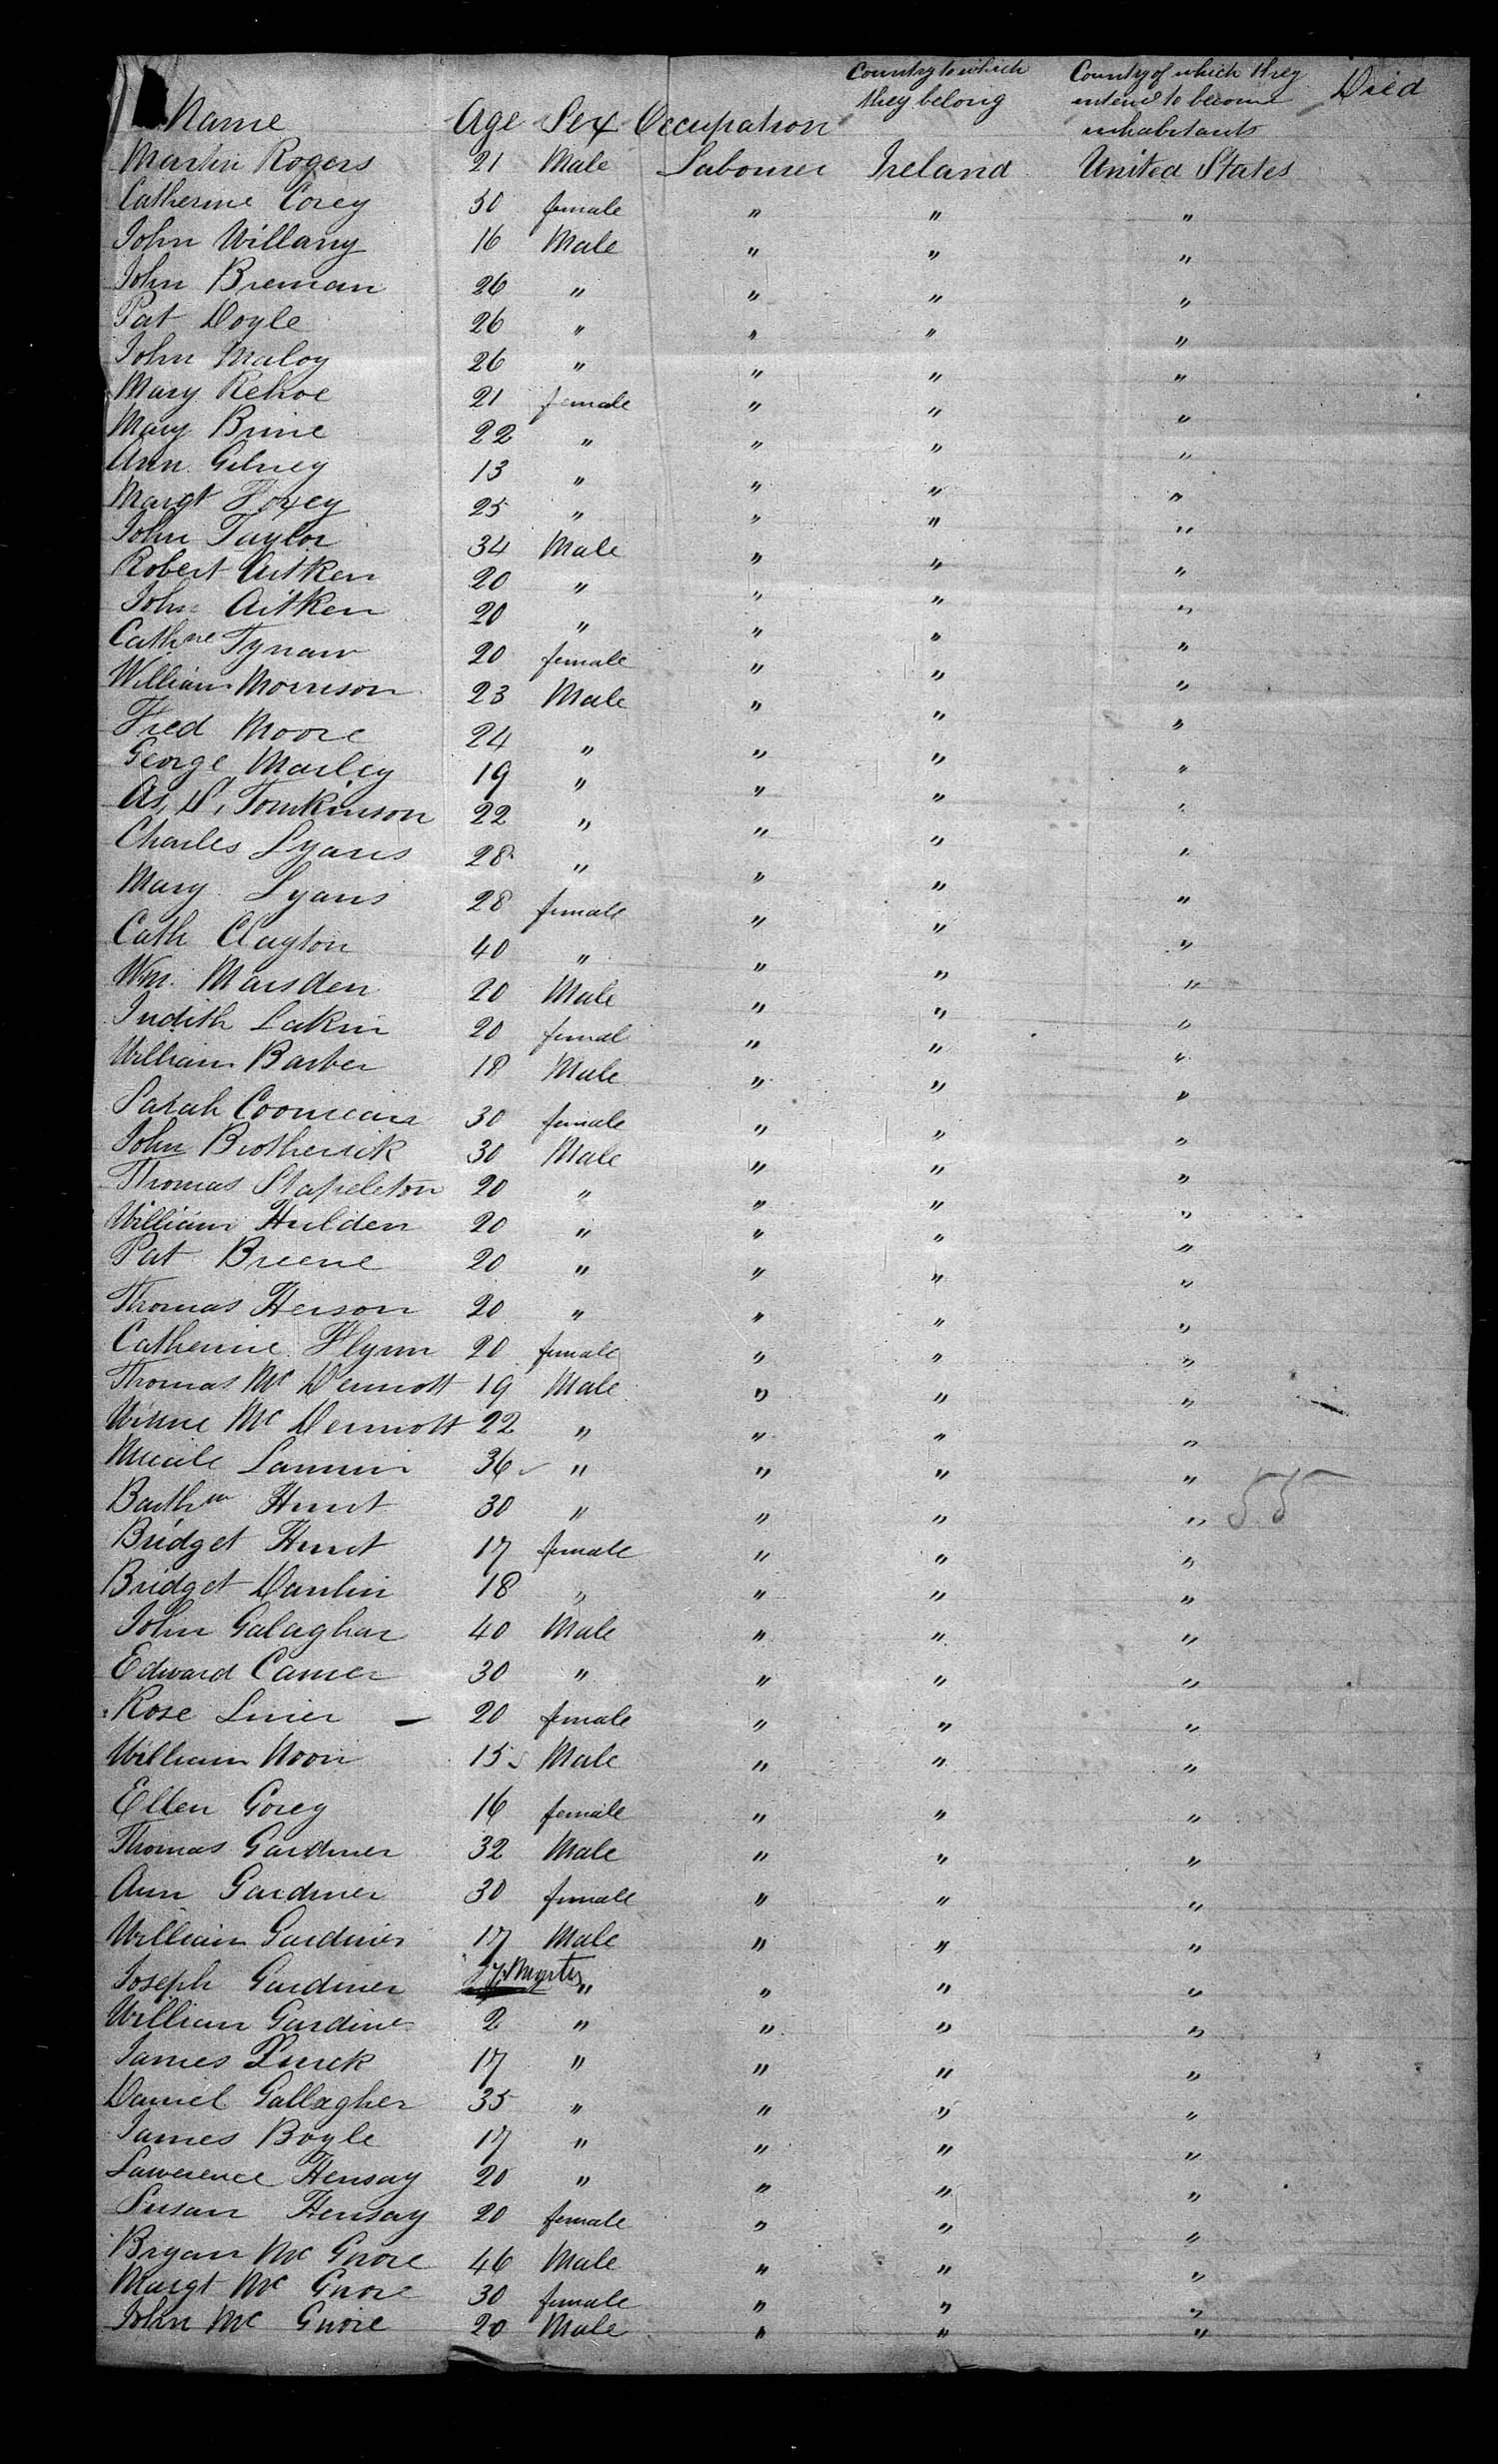 Name Age Sex Occupation Country to which they belong Country of which they intend to become inhabitants Died
Martin Rogers 21 Male Labourer Ireland United States
Catherine Corey 30 female " " "
John Willany 16 Male " " "
John Brennan 26 " " " "
Pat Doyle 26 " " " "
John Maloy 26 " " " "
Mary Kehoe 21 female " " "
Mary Brine 22 " " " "
Ann 13 " " " "
Margt Foxey 25 " " " "
John Taylor 34 Male " " "
Robert Aitken 20 " " " "
John Aitken 20 " " " "
Cathne Tynan 20 female " " "
William Morrison 23 Male " " "
Fred Moore 24 " " " "
George Marley 19 " " " "
As, S, Tomkinson 22 " " " "
Charles Lyans 28 " " " "
Mary Lyans 28 female " " "
Cath Clayton 40 " " " "
Wm. Marsden 20 Male " " "
Judith Lakin 20 femal " " "
William Barber 18 Male " " "
Sarah 30 female " " "
John Brotherick 30 Male " " "
Thomas Stapleton 20 " " " "
William Hulden 20 " " " "
Pat Breene 20 " " " "
Thomas Herson 20 " " " "
Catherine Flynn 20 female " " "
Thomas Mc Dermott 19 Male " " "
Winne Mc Dermott 22 " " " "
Lannin 36 " " " "
Barthw Hunt 30 " " " " 55
Bridget Hunt 17 female " " "
Bridget Danlin 18 " " " "
John Galaghar 40 Male " " "
Edward Carner 30 " " " "
Rose 20 female " " "
William Noon 15 Male " " "
Ellen Gorey 16 female " " "
Thomas Gardiner 32 Male " " "
Ann Gardiner 30 female " " "
William Gardiner 17 Male " " "
Joseph Gardiner " " " "
William Gardiner 2 " " " "
James 17 " " " "
Daniel Gallagher 35 " " " "
James Boyle 17 " " " "
Lawerence Hensay 20 " " " "
Susan Hensay 20 female " " "
Bryan Mc Guore 46 Male " " "
Margt Mc Guore 30 female " " "
John Mc Guore 20 Male " " "